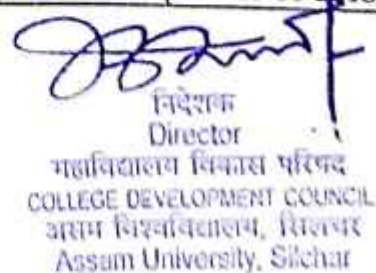 निदेशक
Director
महाविद्यालय विकास परिषद
COLLEGE DEVELOPMENT COUNCIL
असम विश्वविद्यालय, सिलचर
Assam University, Silchar